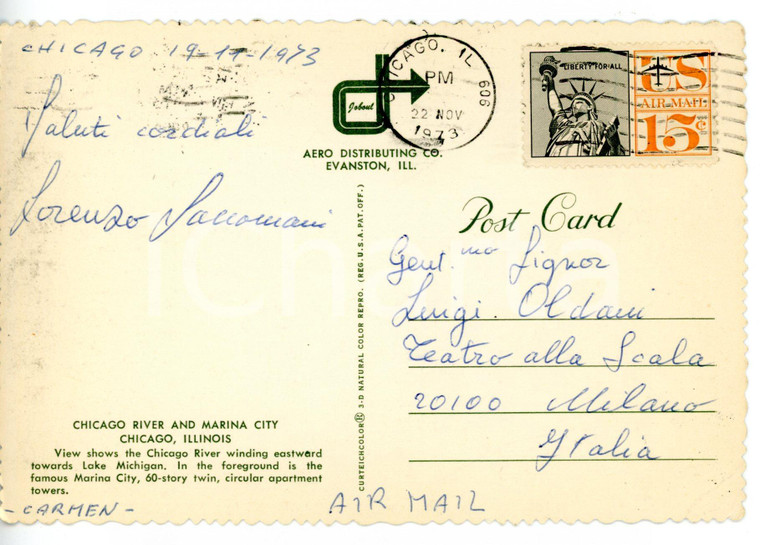 CHICAGO 19-11-1973
Saluti cordiali
Lorenzo Saccomani
Jobout
AERO DISTRIBUTING CO.
EVANSTON, ILL.
CHICAGO, IL 606
PM
22 NOV
1973
LIBERTY·FOR·ALL
US
AIR MAIL
15¢
Post Card
Gent.mo Signor
Luigi Oldani
Teatro alla Scala
20100 Milano
Italia
CURTEICHCOLOR 3-D NATURAL COLOR REPRO. (REG. U.S.A. PAT. OFF.)
CHICAGO RIVER AND MARINA CITY
CHICAGO, ILLINOIS
View shows the Chicago River winding eastward
towards Lake Michigan. In the foreground is the
famous Marina City, 60-story twin, circular apartment
towers.
- CARMEN -
AIR MAIL
iCharta